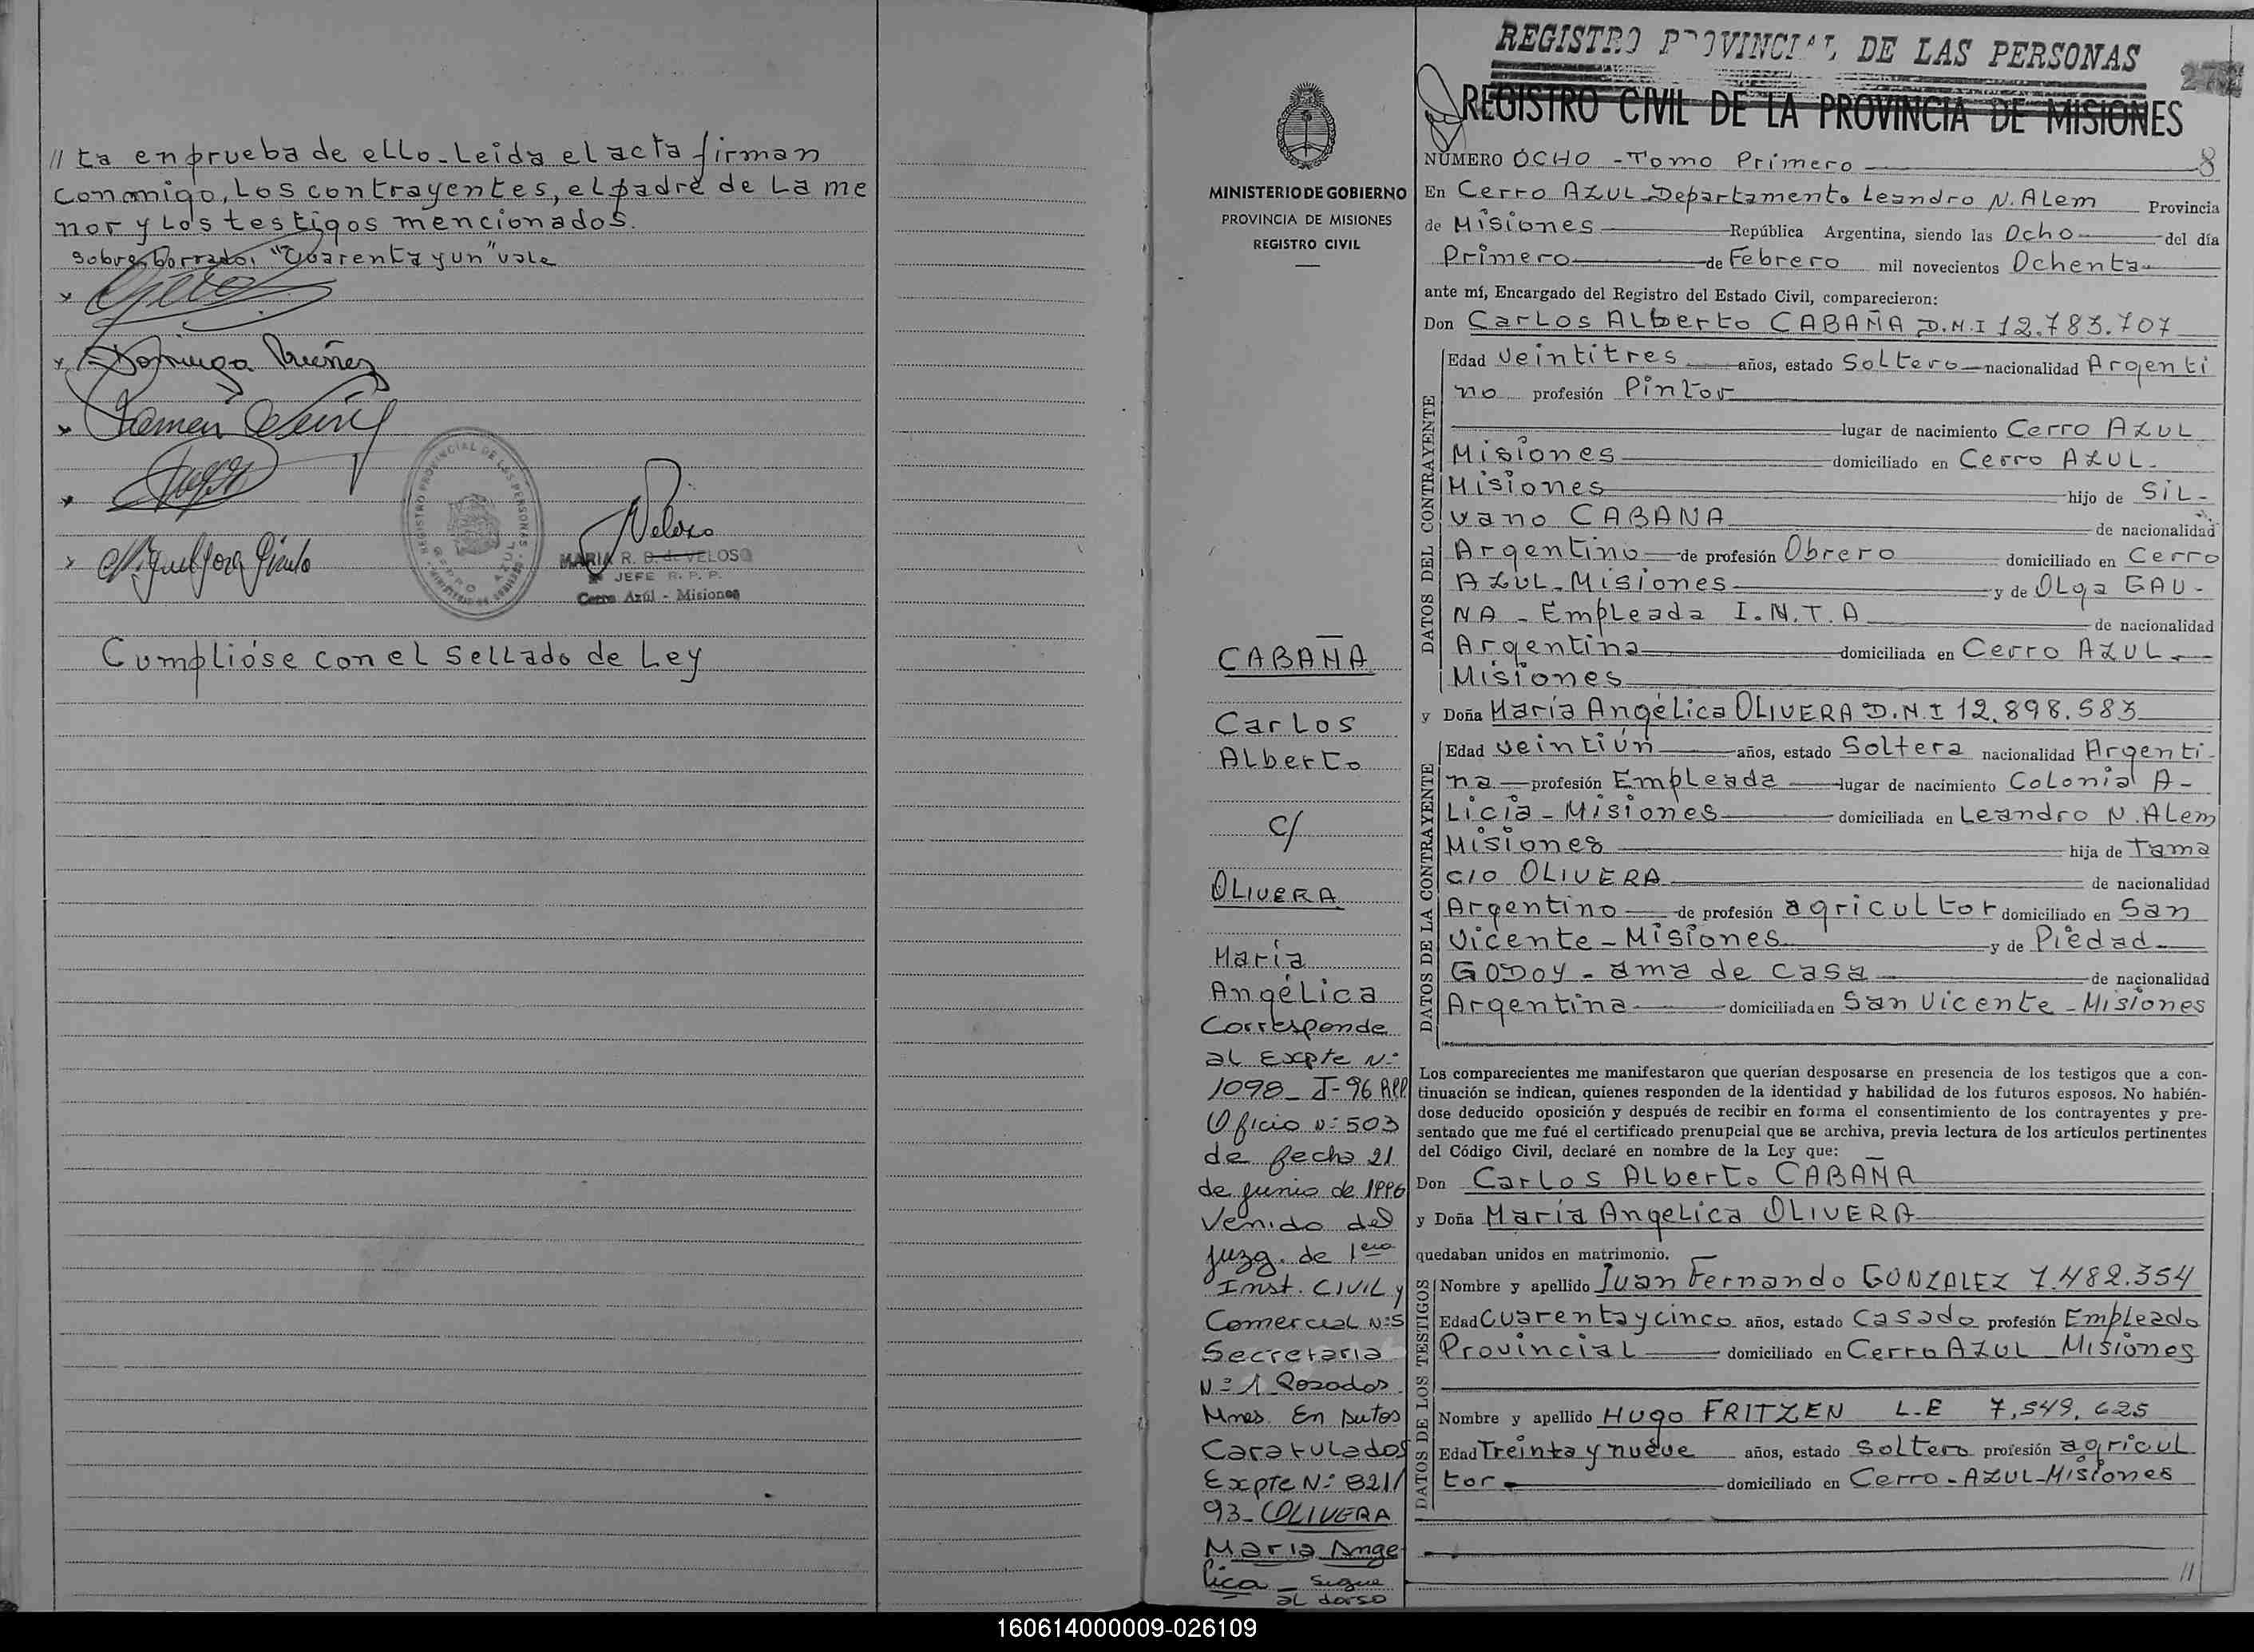 // ta en prueba de ello. Leida el acta firman
conmigo, los contrayentes, el padre de La me
nor y Los testigos mencionados.
Sobre borrado: "Cuarenta y un" vale
Cumplióse con el sellado de Ley
REGISTRO PROVINCIAL DE LAS PERSONAS
MARIA R. B. de VELOSO
JEFE R. P. P.
Cerro Azúl - Misiones
REGISTRO PROVINCIAL DE LAS PERSONAS
REGISTRO CIVIL DE LA PROVINCIA DE MISIONES
MINISTERIO DE GOBIERNO
PROVINCIA DE MISIONES
REGISTRO CIVIL
CABAÑA
Carlos
Alberto
c/
OLIVERA
María
Angélica
Corresponde
al Expte N:
1098_ I-96 RPP
Oficio N: 503
de fecha 21
de junio de 1996
Venido del
Juzg. de 1era
Inst. CIVIL y
Comercial N:5
Secretaria
N: 1 Posadas
Mnes. En Autos
Caratulados
Expte N: 821/
93_ OLIVERA
Maria Ange
lica _ Sigue
al dorso
NÚMERO OCHO - Tomo Primero 8
En Cerro AZUL Departamento Leandro N. ALem Provincia
de Misiones República Argentina, siendo las Ocho del día
Primero de Febrero mil novecientos Ochenta
ante mí, Encargado del Registro del Estado Civil, comparecieron:
Don Carlos ALberto CABAÑA D.N.I 12.783.707
DATOS DEL CONTRAYENTE
Edad Veintitres años, estado Soltero nacionalidad Argenti
no profesión Pintor
lugar de nacimiento Cerro AZUL
Misiones domiciliado en Cerro AZUL.
Misiones hijo de SiL-
vano CABAÑA de nacionalidad
Argentino de profesión Obrero domiciliado en Cerro
AZUL-Misiones y de OLga GAU-
NA - Empleada I.N.T.A de nacionalidad
Argentina domiciliada en Cerro AZUL
Misiones
y Doña María Angélica OLIVERA D.N.I 12.898.583
DATOS DE LA CONTRAYENTE
Edad veintiún años, estado Soltera nacionalidad Argenti-
na profesión Empleada lugar de nacimiento Colonia A-
Licia - Misiones domiciliada en Leandro N. ALem
Misiones hija de Tama
cio OLIVERA de nacionalidad
Argentino de profesión agricultor domiciliado en San
Vicente - Misiones y de Piedad
GODOY - ama de casa de nacionalidad
Argentina domiciliada en San Vicente - Misiones
Los comparecientes me manifestaron que querían desposarse en presencia de los testigos que a con-
tinuación se indican, quienes responden de la identidad y habilidad de los futuros esposos. No habién-
dose deducido oposición y después de recibir en forma el consentimiento de los contrayentes y pre-
sentado que me fué el certificado prenupcial que se archiva, previa lectura de los artículos pertinentes
del Código Civil, declaré en nombre de la Ley que:
Don Carlos ALberto CABAÑA
y Doña María Angelica OLIVERA
quedaban unidos en matrimonio.
DATOS DE LOS TESTIGOS
Nombre y apellido Juan Fernando GONZALEZ 7.482.354
Edad Cuarenta y cinco años, estado Casado profesión Empleado
Provincial domiciliado en Cerro AZUL Misiones
Nombre y apellido Hugo FRITZEN L.E 7.549.625
Edad Treinta y nueve años, estado soltero profesión agricul
tor domiciliado en Cerro-AZUL-Misiones
//
160614000009-026109